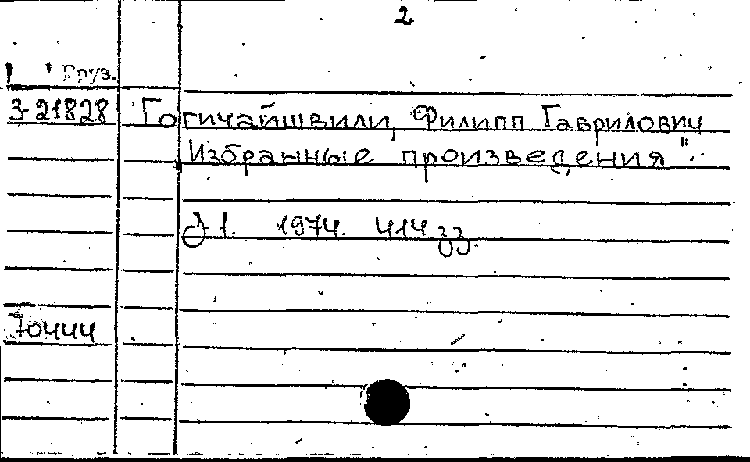 2
Груз.
3-21828 Гогичайшвили, Филипп Гаврилович
Избранные произведения".
ტ 1. 1974. 414 გვ.
70444